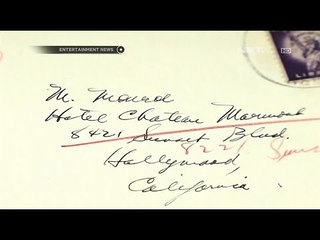 ENTERTAINMENT NEWS
HD
LIB
M. Monroe
Hotel Chateau Marmont
8421 Sunset Blvd.
8221 Suns
Hollywood
California